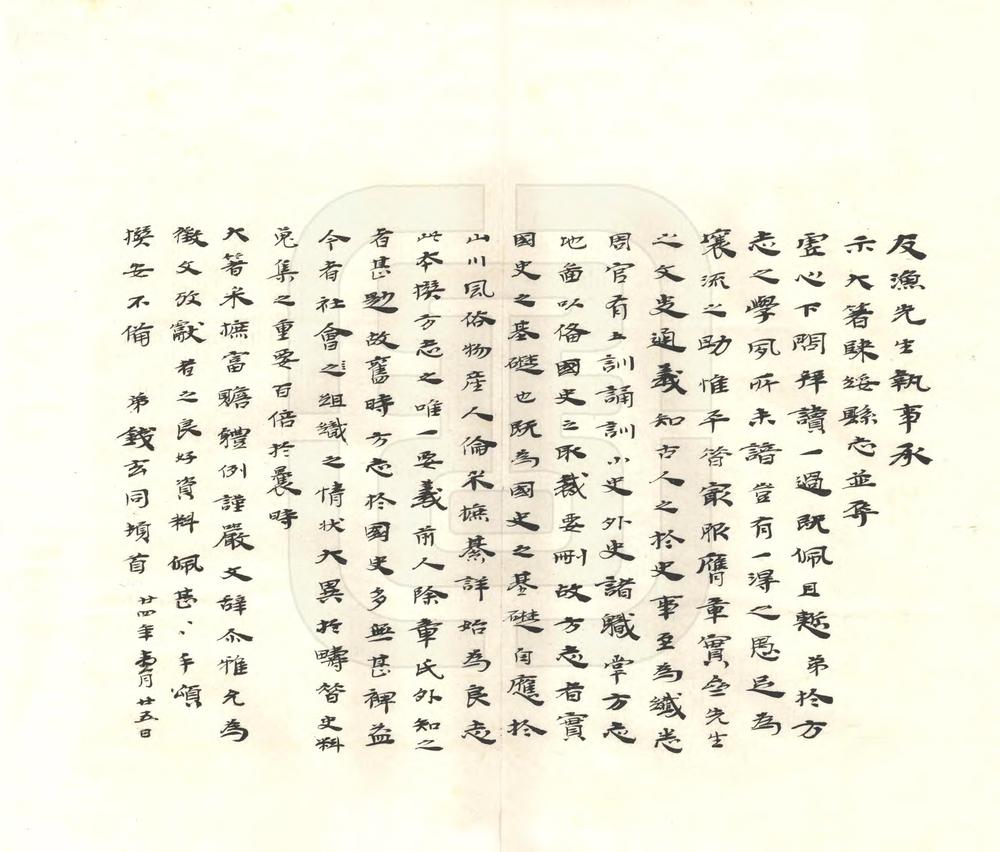 友漁先生執事承
示大著睐綏縣志並弁
虛心下問拜讀一過既佩且慙弟於方
志之學夙所未諳豈有一得之愚足為
壤流之助惟平昔寂服膺章實齋先生
之文史通義知古人之於史事至為纖悉
周官有土訓誦訓小史外史諸職掌方志
地啚以俻國史之取裁要刪故方志者實
國史之基礎也既為國史之基礎自應於
山川風俗物産人倫采摭綦詳始為良志
此本撰方志之唯一要義前人除章氏外知之
者甚尟故舊時方志於國史多無甚裨益
今者社會之組織之情狀大異於疇昔史料
蒐集之重要百倍於曩時
大著采摭富贍體例謹嚴文辞尒雅允為
徵文攷獻者之良好資料佩甚〻手頌
撰安不備 弟錢玄同頓首 廿四年 月廿五日